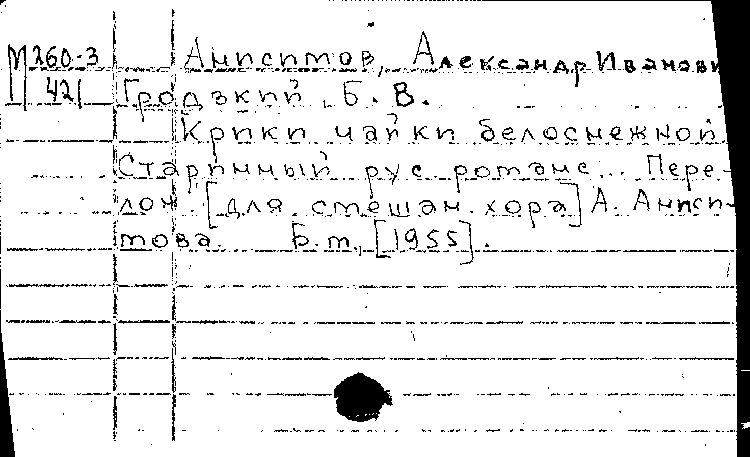 М260-3 Анисимов, Александр Иванови
421 Гродзкий, Б. В.
Крики чайки белоснежной.
Старинный рус. романс. Пере-
лож. [для смешан. хора] А. Аниси-
мова. Б.м., [1955].